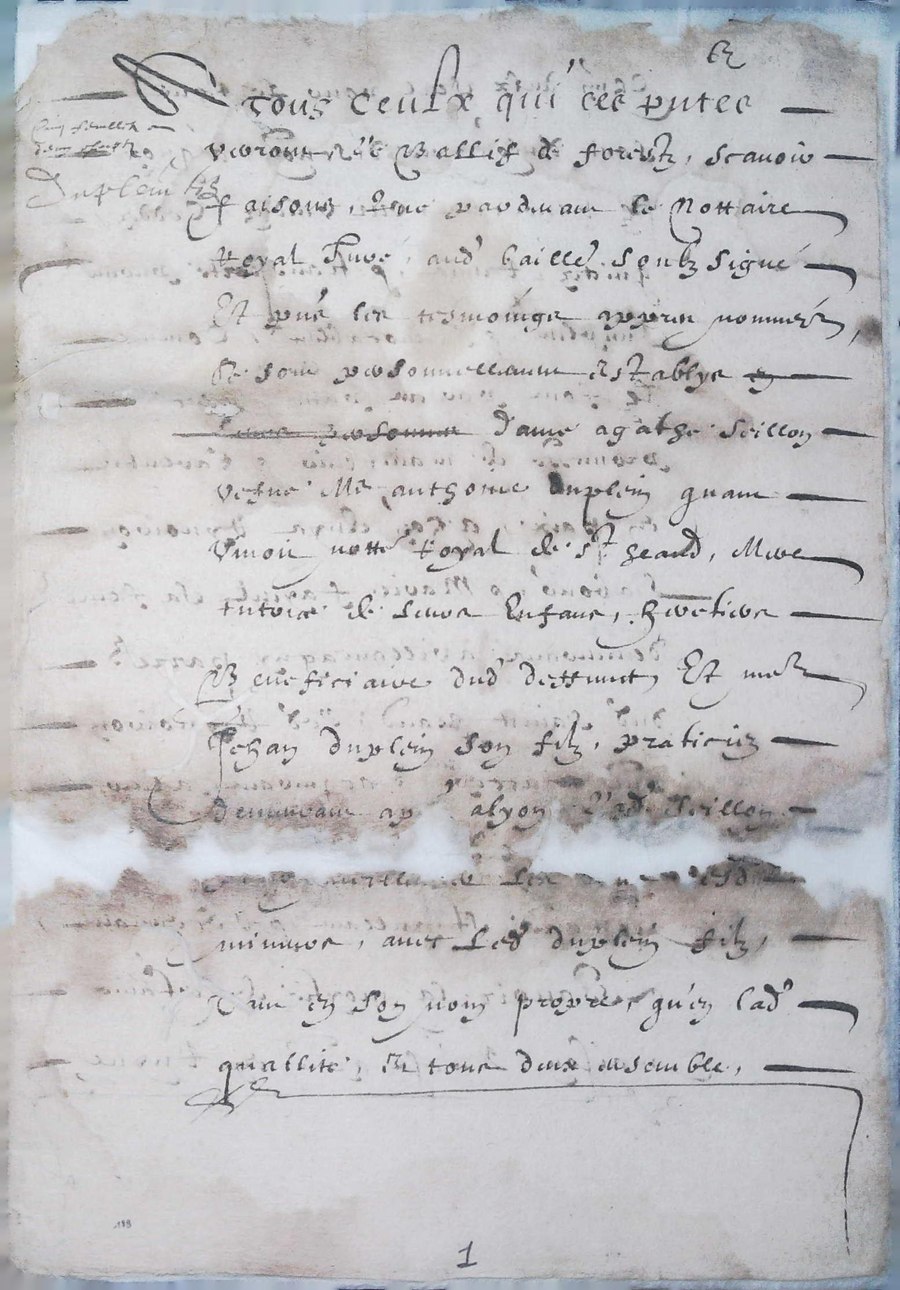 A tous ceulx qui ces pntes
verront Nous Ballif de forestz, scavoir
Duplein
faisons, Que pardevant le Nottaire
Royal Juré, aud' bailler soubz signé
Et pnt les tesmoings appres nommés,
personnellement establye
dame agathe Seillon
vefve Me anthoine duplein quant
vivoit notte Royal de St heand, Mere
tutrice de leurs Enfans, heretiere
Beneficiaire dud' deffunct Et me
Jehan duplein son filz, praticien
demeurant a lyon Lad' Seillon
mineurs, avec Led' duplein filz,
Tant en son nom propre, qu'en lad'
quallité, Et tous deux ensemble,
118
1